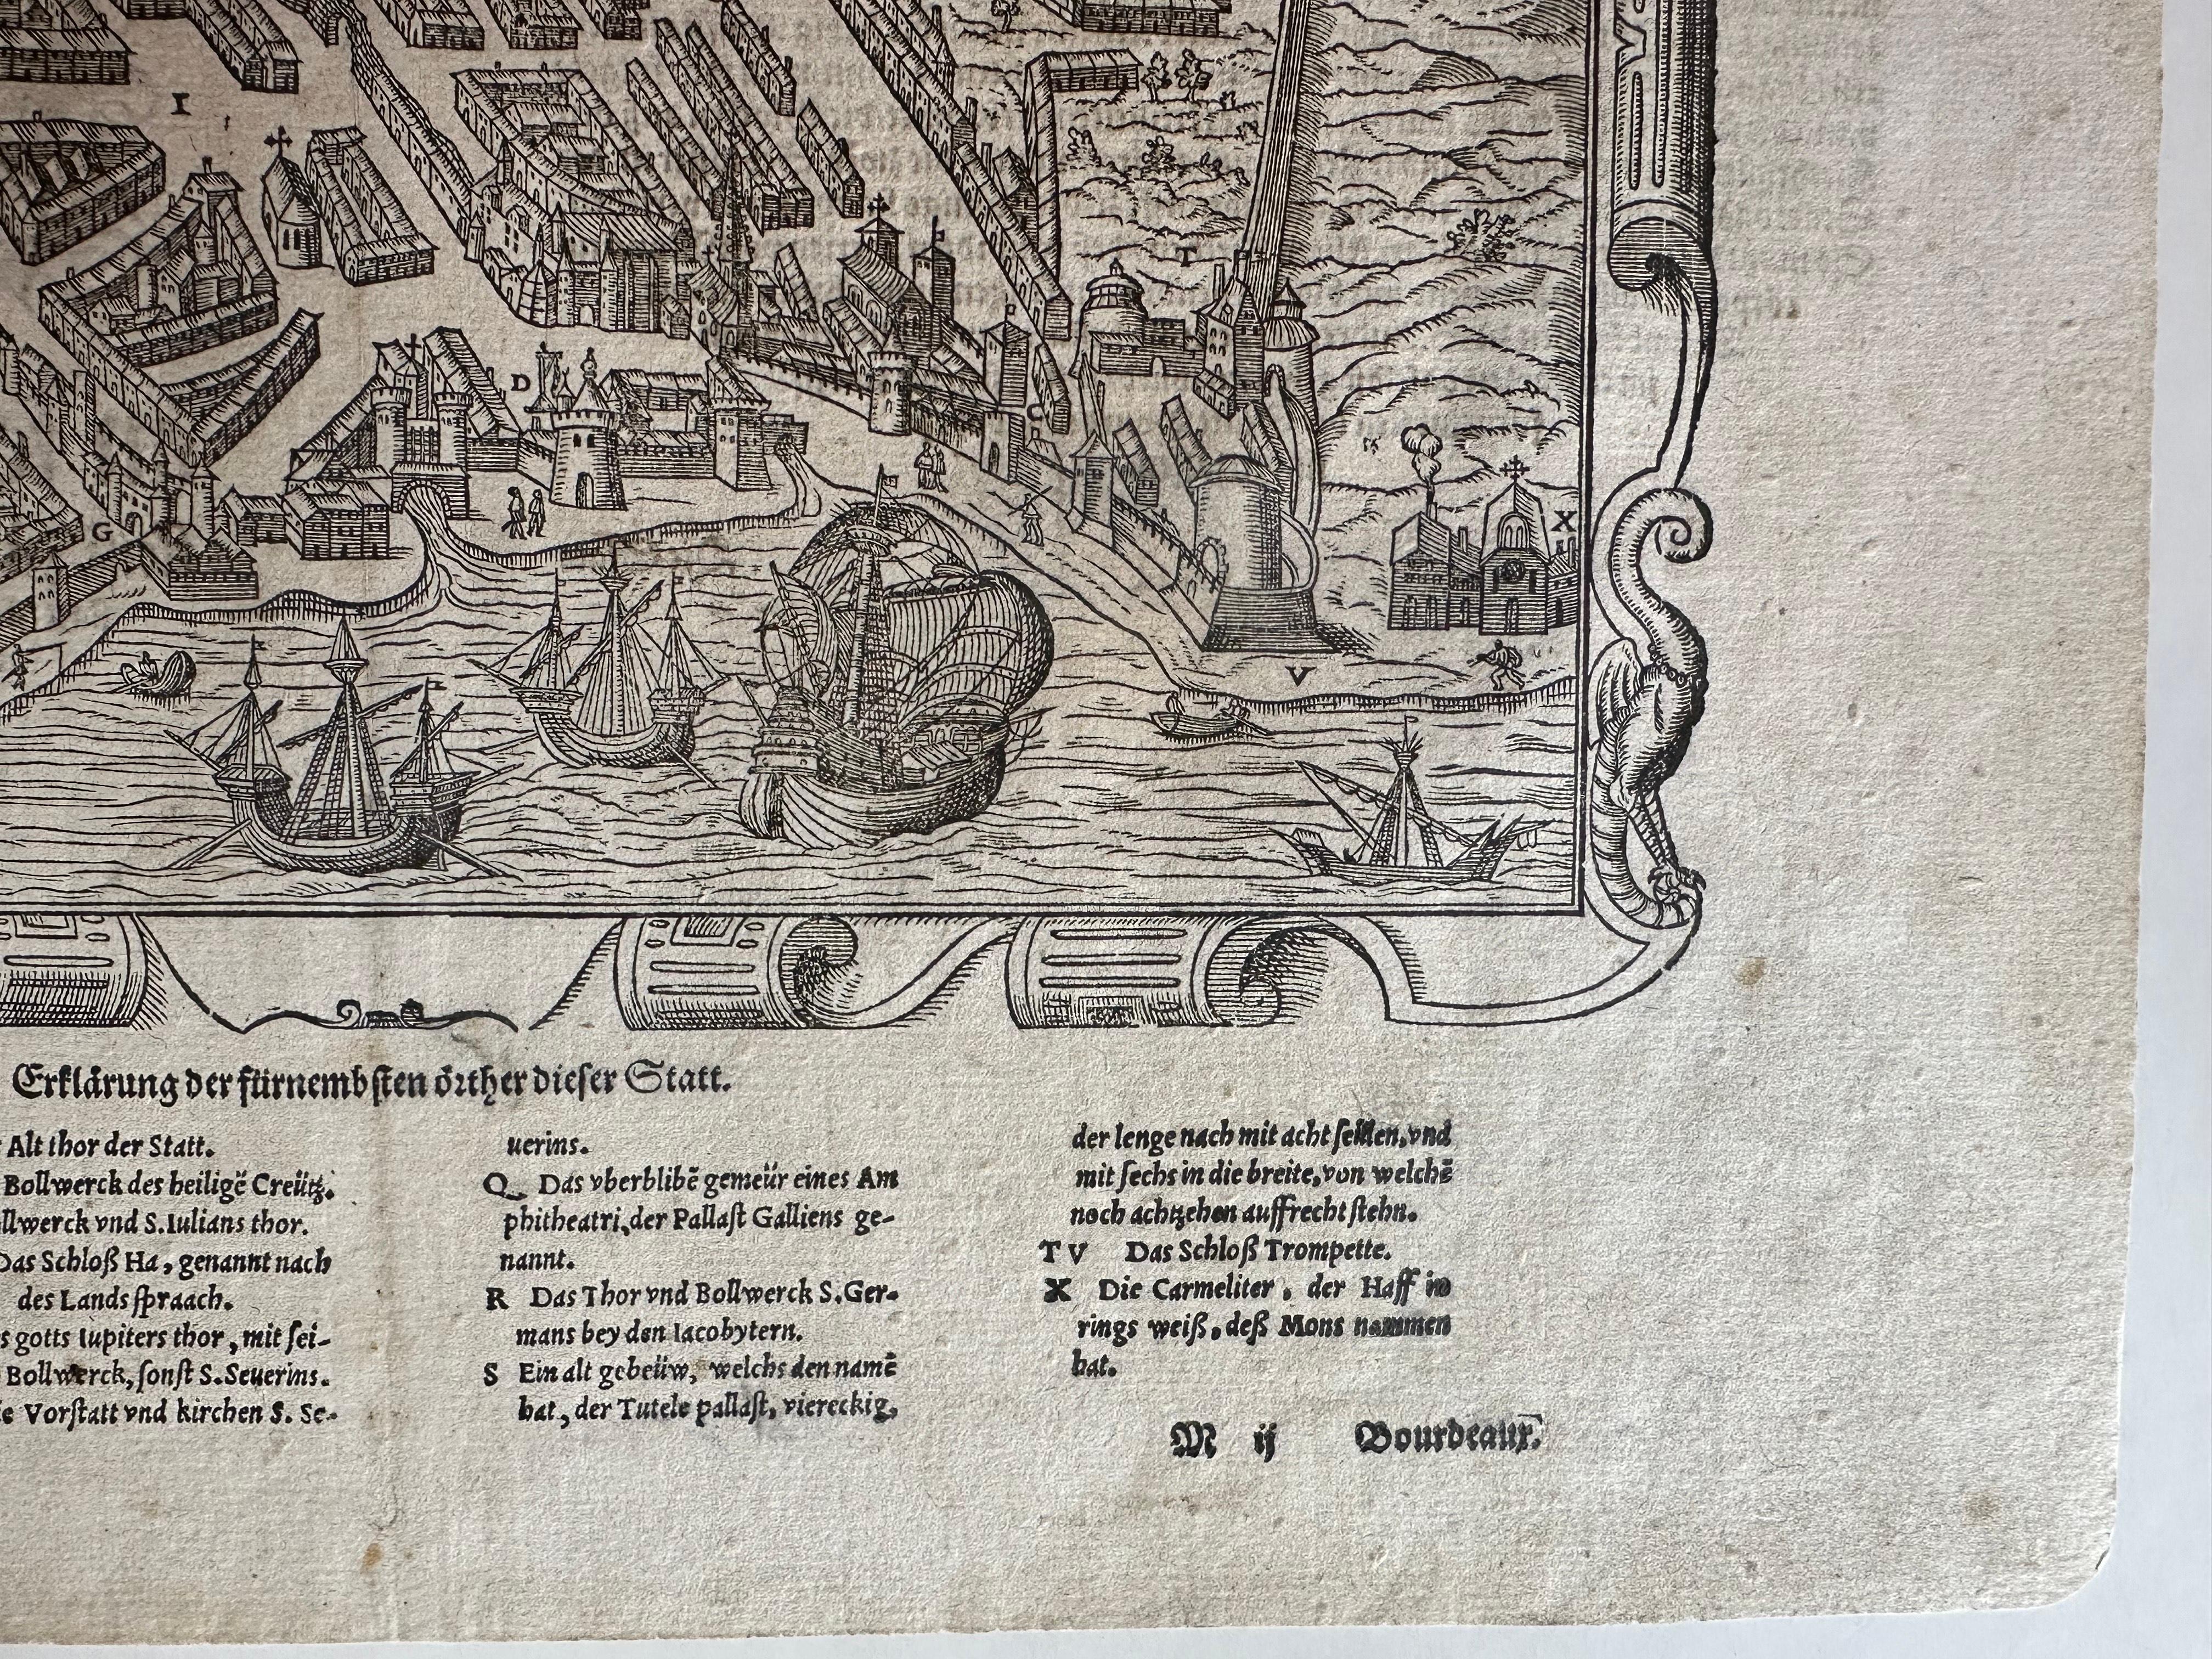 I
T
D
C
G
X
V
Erklärung der fürnembsten örther dieser Statt.
Alt thor der Statt.
Bollwerck des heiligē Creütz.
llwerck vnd S.Iulians thor.
Das Schloß Ha, genannt nach
des Lands spraach.
s gotts Iupiters thor, mit sei-
Bollwerck, sonst S.Seuerins.
ie Vorstatt vnd kirchen S. Se-
uerins.
Q Das vberblibē gemeür eines Am
phitheatri, der Pallast Galliens ge-
nannt.
R Das Thor vnd Bollwerck S.Ger-
mans bey den Iacobytern.
S Ein alt gebeüw, welchs den namē
hat, der Tutele pallast, viereckig,
der lenge nach mit acht seülen, vnd
mit sechs in die breite, von welchē
noch achtzehen auffrecht stehn.
T V Das Schloß Trompette.
X Die Carmeliter, der Haff in
rings weiß, deß Mons nammen
hat.
M ij Bourdeaux.